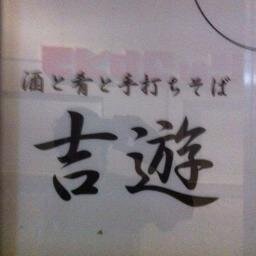 酒と肴と手打ちそば
吉遊